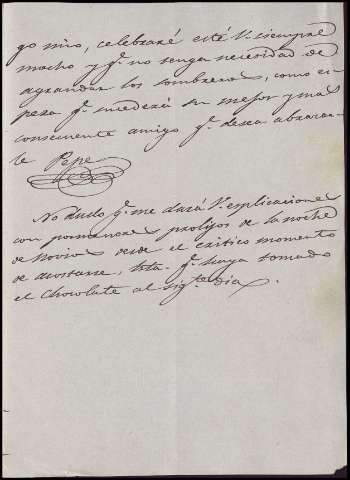 go mio, celebraré esté V. siempre
macho y q.e no tenga necesidad de
agrandar los sombreros, como em
pesa q.e sucederá su mejor y mas
consecuente amigo q.e desea abrazar
le Pepe
No dudo q.e me dará V. esplicaciones
con pormenores prolijos de la noche
de novios desde el critico momento
de acostarse, hta. q.e haya tomado
el Chocolate al sig.te dia.